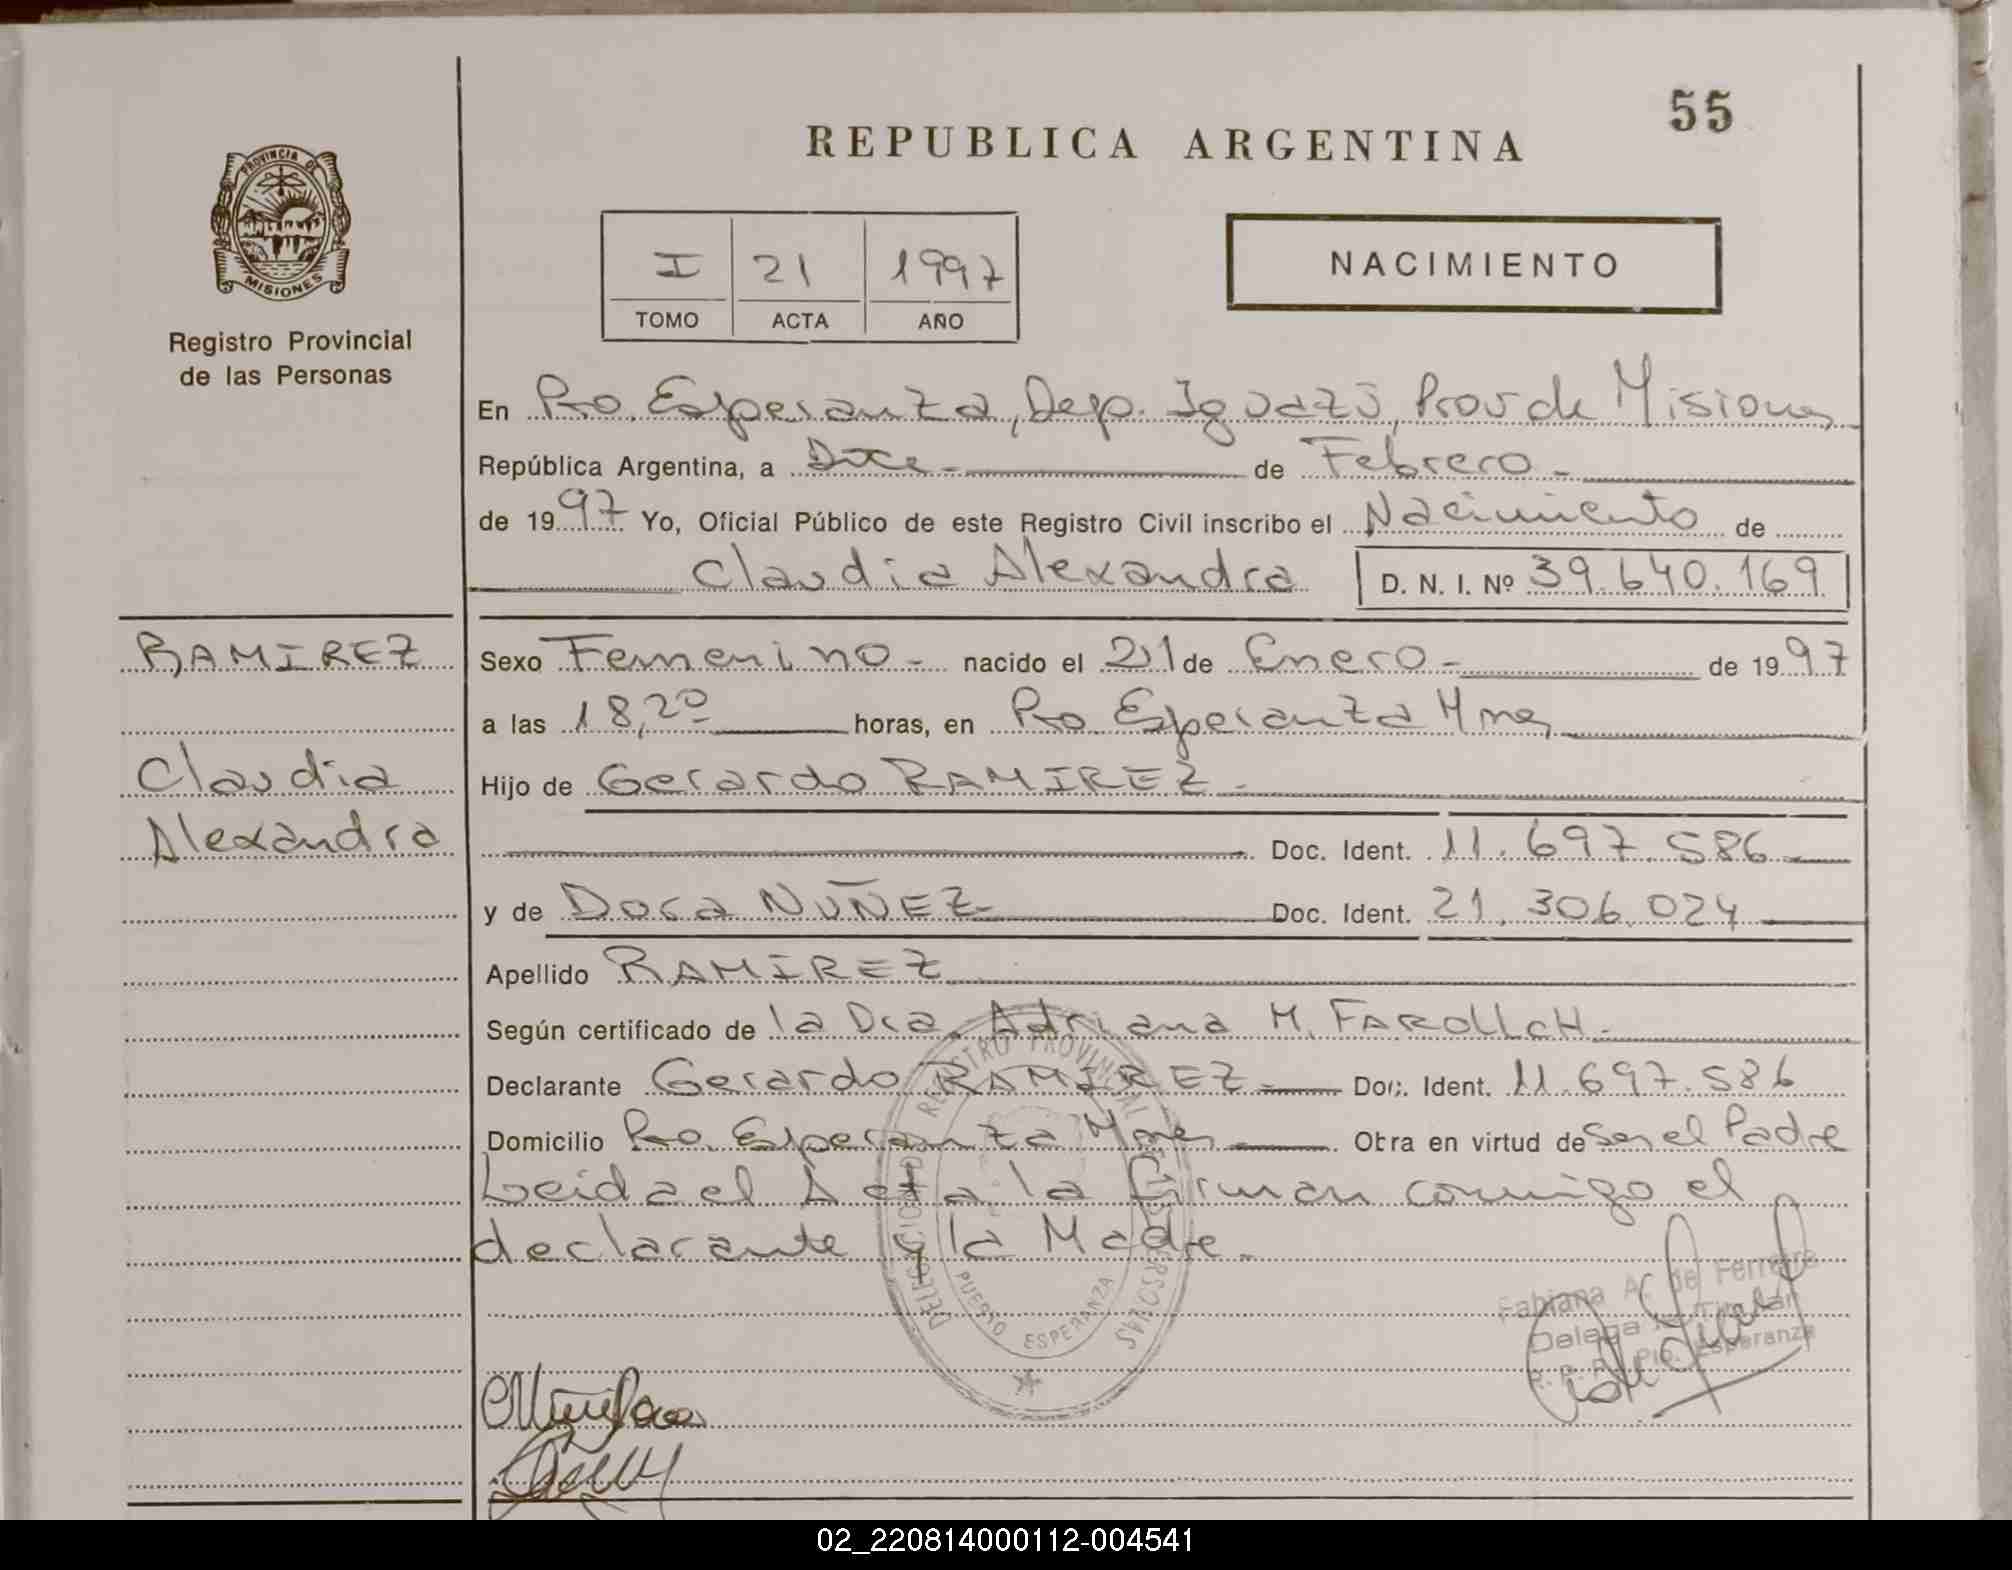 55
REPUBLICA ARGENTINA
PROVINCIA DE
MISIONES
Registro Provincial
de las Personas
I 21 1997
TOMO ACTA AÑO
NACIMIENTO
En Pto. Esperanza, Dep. Iguazú, Prov de Misiones
República Argentina, a Doce - de Febrero -
de 1997 Yo, Oficial Público de este Registro Civil inscribo el Nacimiento de
Claudia Alexandra D. N. I. Nº 39.640.169
RAMIREZ
Claudia
Alexandra
Sexo Femenino - nacido el 21 de Enero - de 1997
a las 18,20 horas, en Pto Esperanza Mnes
Hijo de Gerardo RAMIREZ -
Doc. Ident. 11.697.586
y de Dora NUÑEZ - Doc. Ident. 21.306.024
Apellido RAMIREZ
Según certificado de la Dra. Adriana M. FAROLLCH -
Declarante Gerardo RAMIREZ - Doc. Ident. 11.697.586
Domicilio Pto. Esperanza Mnes Obra en virtud de Ser el Padre
Leida el Acta la firman conmigo el
declarante y la Madre.
REGISTRO PROVINCIAL DE LAS PERSONAS
DELEGACION
PUERTO ESPERANZA
Fabiana A. de Ferreira
Delega Titular
R. P. P. Pto. Esperanza
02_220814000112-004541